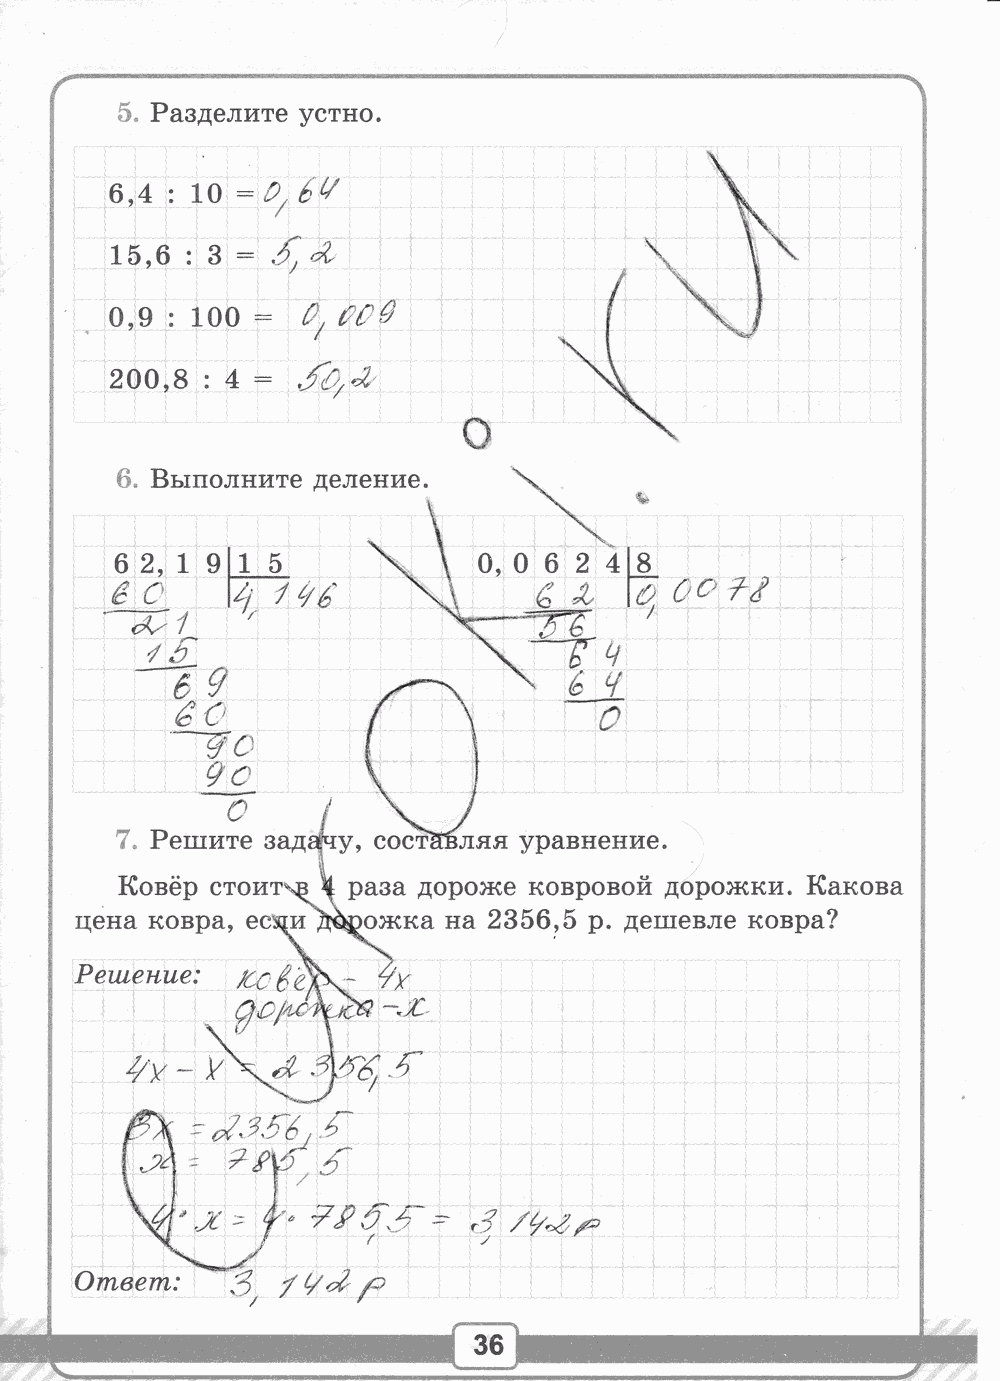 5. Разделите устно.
6,4 : 10 = 0,64
15,6 : 3 = 5,2
0,9 : 100 = 0,009
200,8 : 4 = 50,2
6. Выполните деление.
62,19 15
60 4,146
21
15
69
60
90
90
0
0,0624 8
62 0,0078
56
64
64
0
7. Решите задачу, составляя уравнение.
Ковёр стоит в 4 раза дороже ковровой дорожки. Какова
цена ковра, если дорожка на 2356,5 р. дешевле ковра?
Решение: ковёр – 4х
дорожка – х
4х – х = 2356,5
3х = 2356,5
х = 785,5
4 · х = 4 · 785,5 = 3,142р
Ответ: 3,142р
36
yrokoki.ru